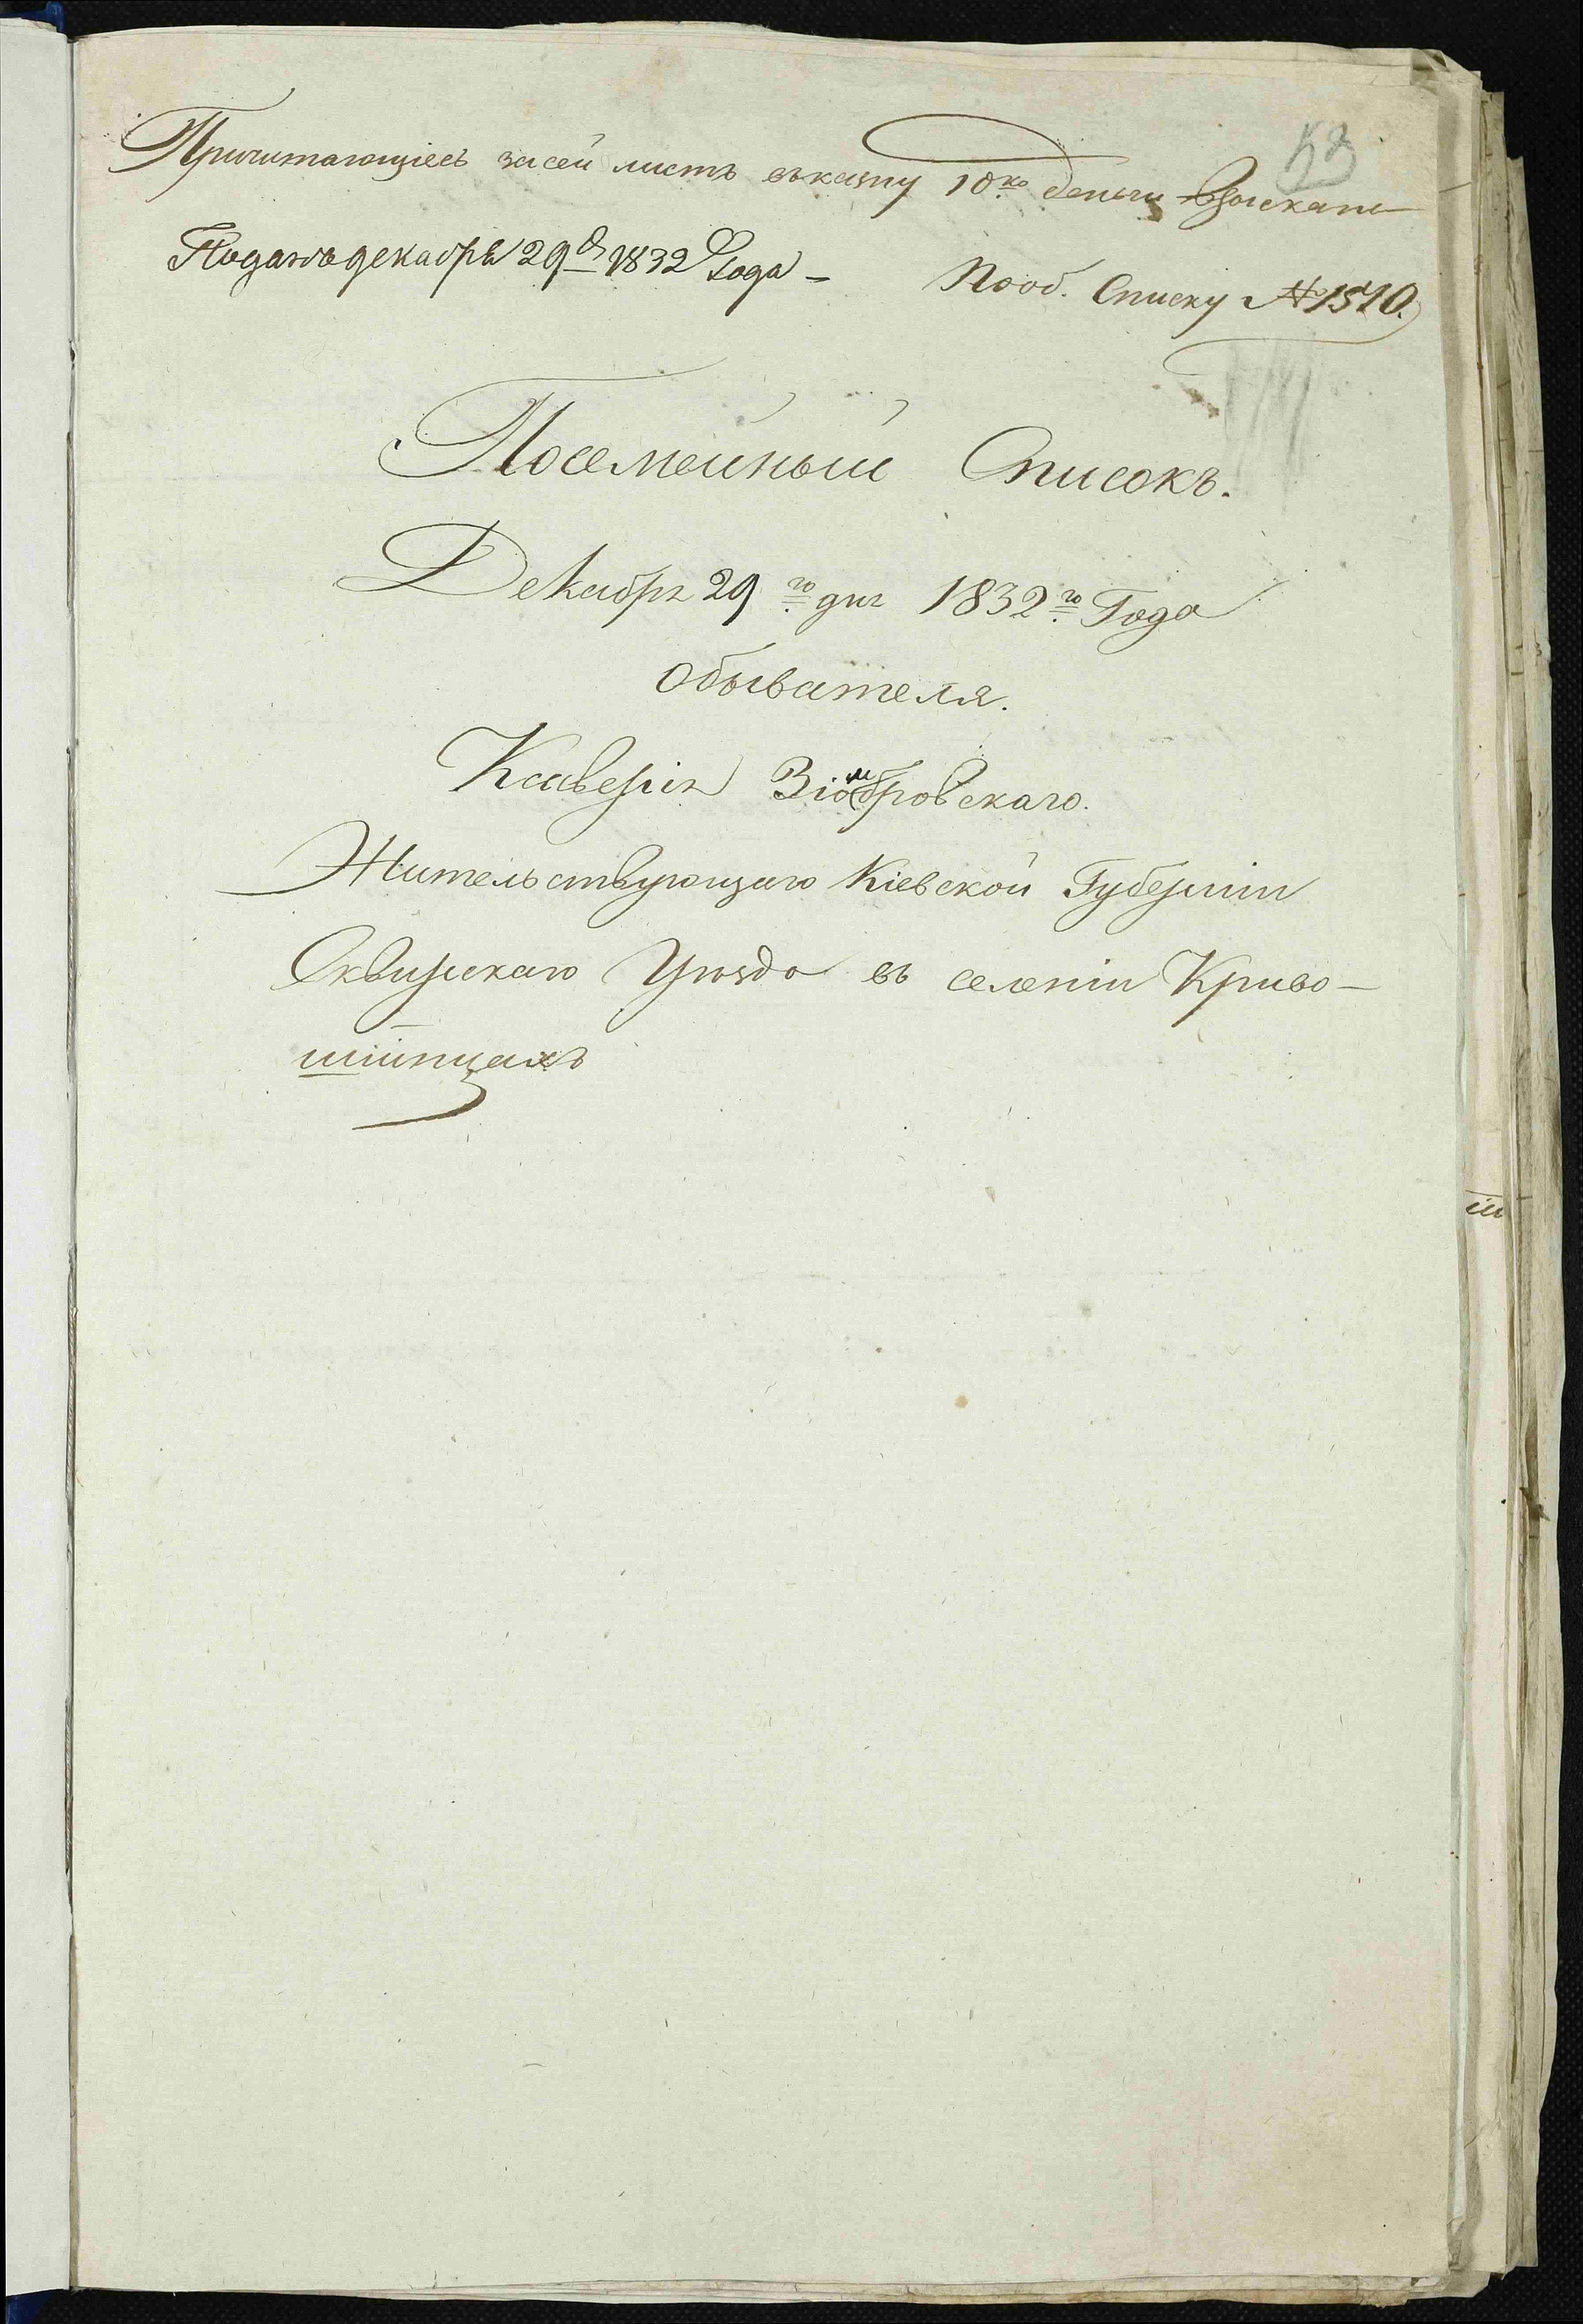 53
Причитающіесь за сей листъ въ казну 10 ко деньги взысканы
Поданъ декабря 29 д 1832 Года –
По об. Списку № 1510.
Посемейный Списокъ.
Декабря 29 го дня 1832 го Года
Обывателя.
Ксаверія Зіомбровскаго.
Жительствующаго Кіевской Губерніи
Сквирскаго Уѣзда въ селеніи Криво-
шіинцахъ